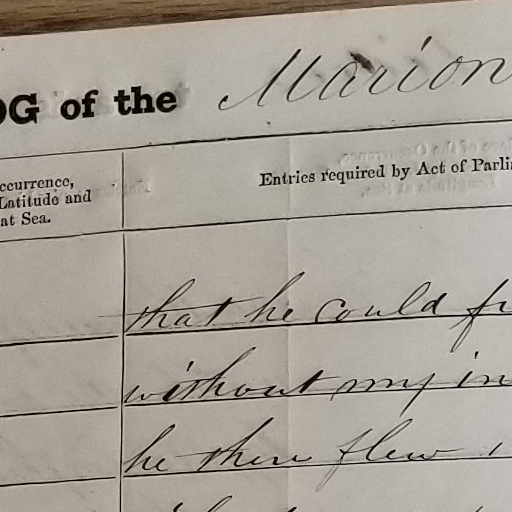 OG of the Marion
ccurrence,
Latitude and
at Sea.
Entries required by Act of Parli
that he could fr
without my in
he then flew i